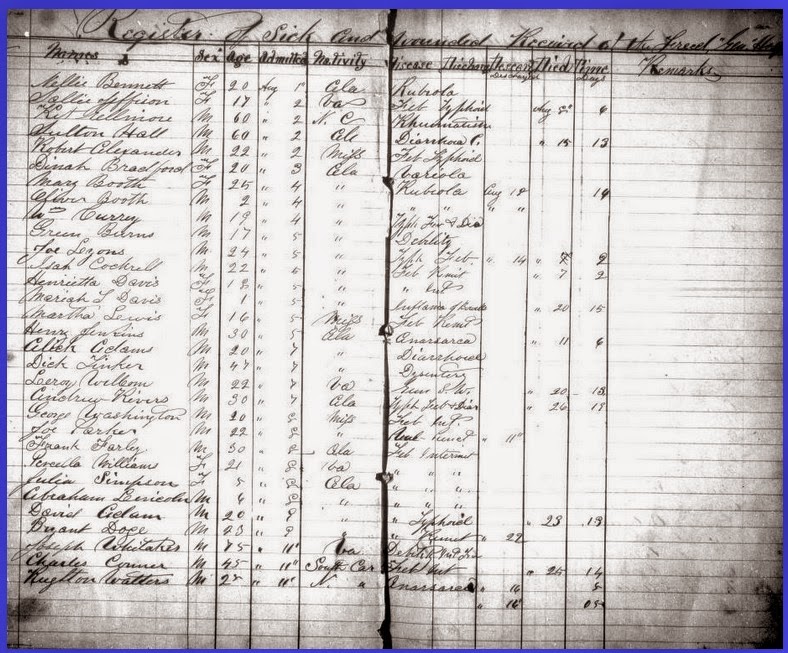 Register of Sick and Wounded Received at the
Names Sex Age Admitted Nativity Disease Discharged Died Time Days Remarks
Nellie Bennett F 20 Aug 1" Ala Rubiola
Sallie Jefferson F 17 " 2 Va Feb Typhoid Aug 6
M 60 " 2 N. C Rhumatism
Fulton Hall M 60 " 2 Ala Diarrhoea C. " 15 13
Robert Alexander M 22 " 2 Miss Feb Typhoid
Dinah Bradford F 20 " 3 Ala Variola
Mary Booth F 25 " 4 " Rubiola Aug 18 14
Oliver Booth M 2 " 4 " " " " "
Wm Currey M 19 " 4 " Typh Fev & Dia
Green Burns M 17 " 5 " Debility
Joe Lyons M 24 " 5 " Typh Feb " 14 " 7 2
Cockrell M 22 " 5 " Feb Remit " 7 2
Henrietta Davis F 18 " 5 " " Int
Mariah L Davis F 1 " 5 " " 20 15
Martha Lewis F 16 " 5 Miss Feb Remit
Henry Jenkins M 30 " 5 Ala Anasarca " 11 6
Alick Adams M 20 " 7 " Diarrhoea
Dick Tinker M 47 " 7 " Dysentery
Leroy M 22 " 7 Va " 20 13
Andrew Rivers M 30 " 7 Ala Typh Feb & Diar " 26 19
George Washington M 20 " 8 Miss Feb Int.
Joe Parker M 22 " 8 " Remit " 11"
Frank Farley M 30 " 8 Ala Feb Intermt
Williams F 21 " 8 Va " "
Julia Simpson F 5 " 8 Ala " "
Abraham Lincoln M 6 " 8 " " "
David Adam M 20 " 8 " " Typhoid " 23 15
Bryant Doge M 23 " 8 " " Remit " 22
Joseph Whitaker M 75 " 11" Va
Charles Conner M 45 " 11" South Car Feb Int " 25 14
Watters M " 11" N. " Anasarca " 16 5
" 16